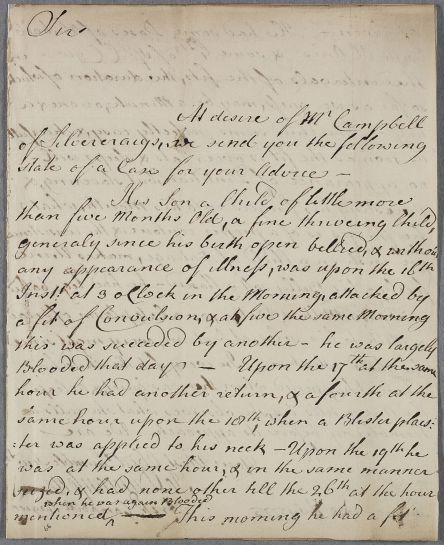 Sir
At desire of Mr Campbell
of Silvercraigs, we send you the following
state of a Case for your Advice –
His Son a Child of little more
than five Months Old, a fine thriveing Child,
generaly since his birth open bellied, & without
any appearance of illness, was upon the 16th
Inst. at 3 oClock in the Morning, attacked by
a fit of Convulsion, & at five the same Morning
this was succeeded by another – he was largely
Blooded that day – Upon the 17th at the same
hour he had another return, & a fourth at the
same hour upon the 18th, when a Blister plais:
:ter was applied to his neck – Upon the 19th he
was at the same hour, & in the same manner
seized, & had none other till the 26th at the hour
when he was again Blooded
mentioned ^ This morning he had a fit